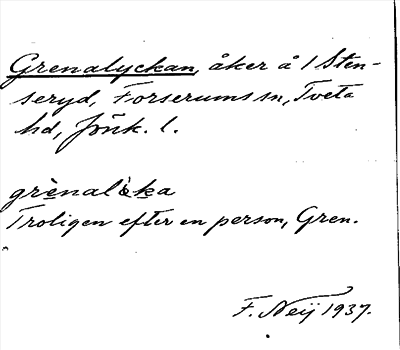 Grenalyckan, åker å 1 Sten-
seryd, Forserums sn, Tveta
hd, Jönk. l.
grènalὰka
Troligen efter en person, Gren.
F. Neij 1937.